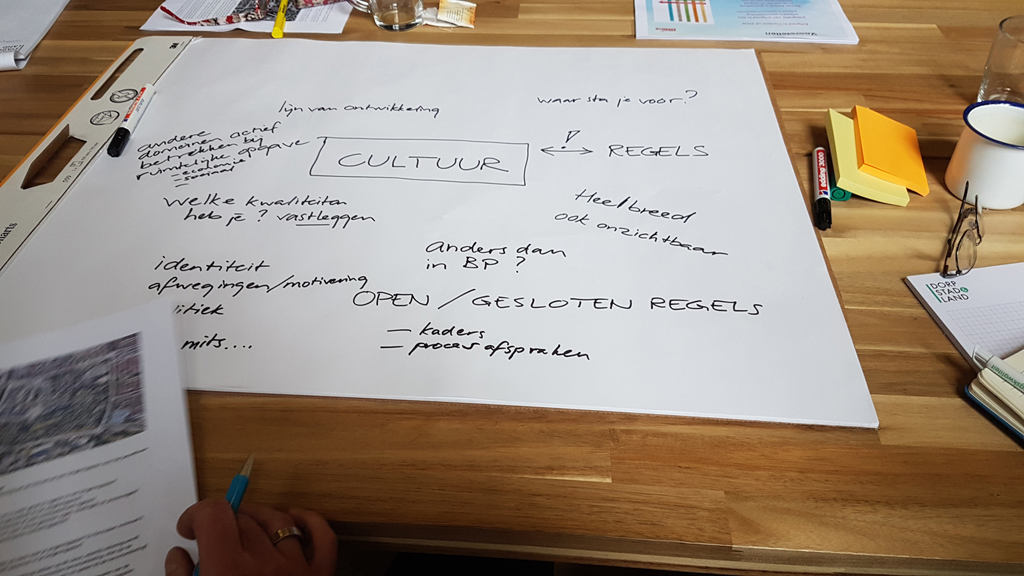 lijn van ontwikkeling
waar sta je voor?
andere
domeinen actief
betrekken bij
ruimtelijke opgave
– ecologie
– sociaal
CULTUUR
!
REGELS
welke kwaliteiten
heb je? vastleggen
Heel breed
ook onzichtbaar
anders dan
in BP?
identiteit
afwegingen/motivering
itiek
mits....
OPEN / GESLOTEN REGELS
– kaders
– proces afspraken
edding 3000
DORP
STAD &
LAND